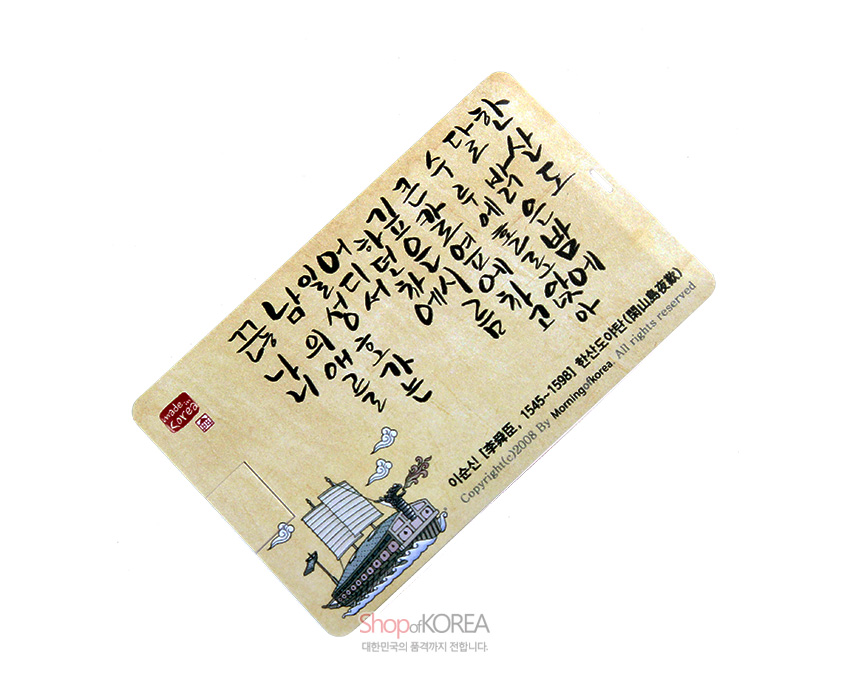 한산도
달 밝은 밤에
수루에 홀로 앉아
큰 칼 옆에 차고
깊은 시름
하던 차에
어디서
일성호가는
남의 애를
끊나니
made in Korea
이순신 [李舜臣, 1545~1598] 한산도야탄(閑山島夜歎)
Copyright(c)2008 By Morningofkorea. All rights reserved
ShopofKOREA
대한민국의 품격까지 전합니다.